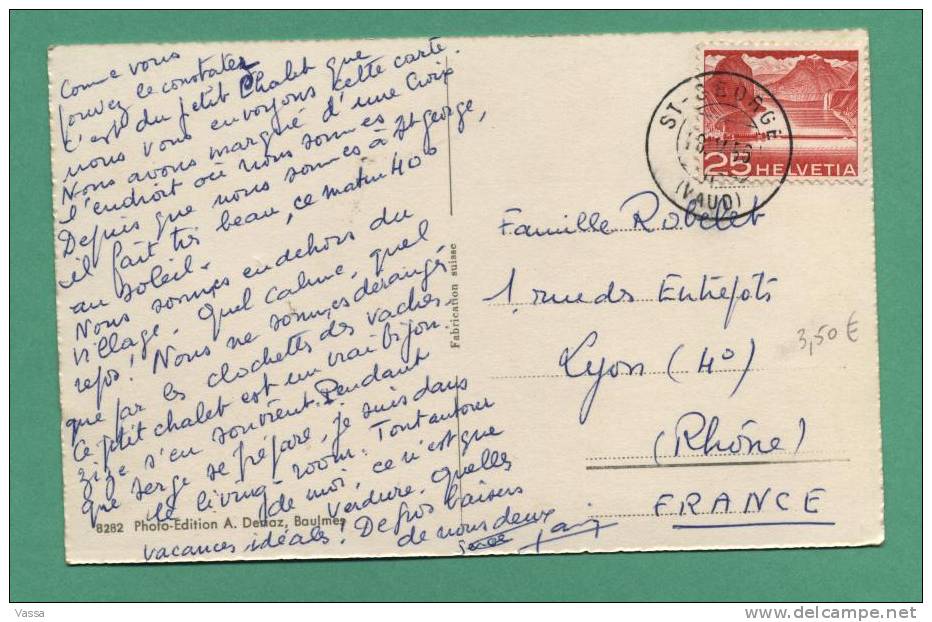 Comme vous
pouvez le constater
c'est du petit chalet que
nous vous envoyons cette carte.
Nous avons marqué d'une croix
l'endroit où nous sommes
Depuis que nous sommes à St George,
il fait très beau, ce matin 40°
au soleil.
Nous sommes en dehors du
village. Quel calme, quel
repos! Nous ne sommes dérangés
que par les clochettes des vaches.
Ce ptit chalet est un vrai bijou.
s'en souvient. Pendant
que Serge se prépare, je suis dans
le living-room. Tout autour
de moi, ce n'est que
verdure. Quelles
vacances idéales! De gros baisers
de nous deux
8282 Photo-Edition A. Deriaz, Baulmes
Fabrication suisse
ST-GEORGE
(VAUD)
25 HELVETIA
Famille Robelet
1 rue des Entrepôts
Lyon (4°)
(Rhône)
FRANCE
3,50 €
Vassa
www.delcampe.net